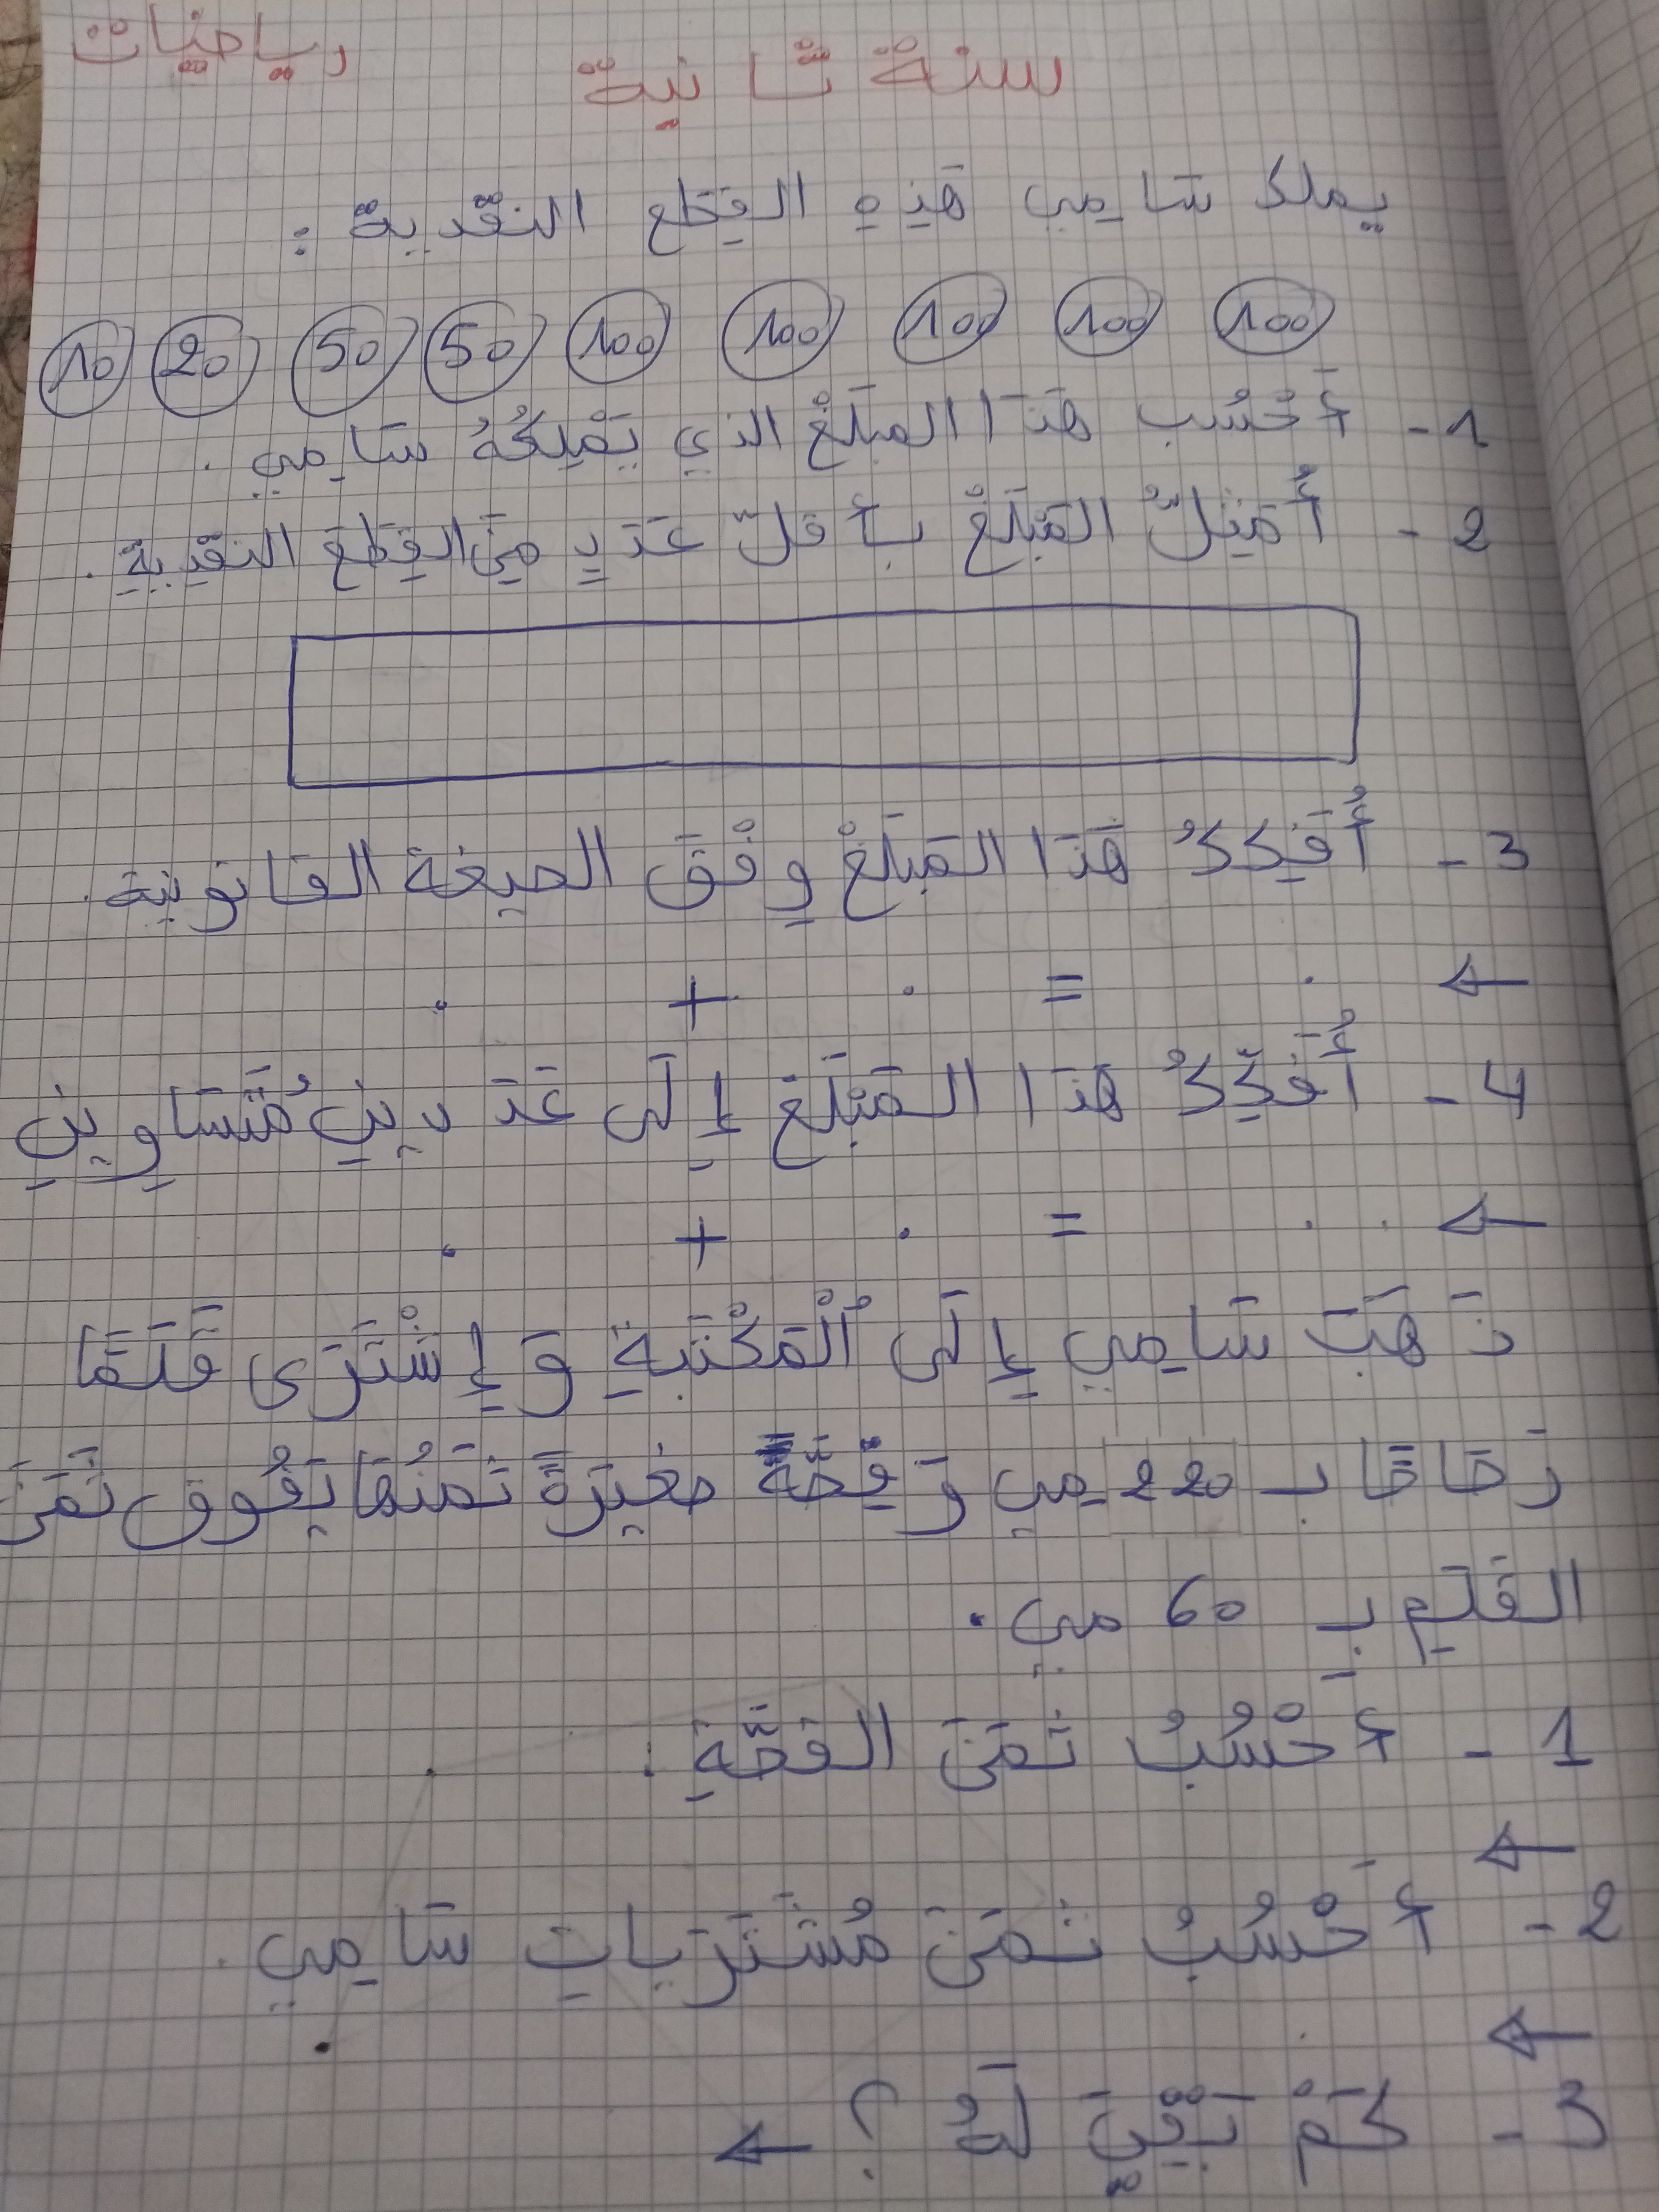 رياضيات
سنة ثانية
يملك سَامِي هَذِهِ القِطَع النقدية :
100 100 100 100 100 50 50 20 10
1 - أَحْسُب هَذَا المبلَغْ الذي يَمْلِكُهُ سَامِي .
2 - أُمَثِلُّ المَبْلَغْ بأقلّ عَدَدٍ مِنَ القِطَعِ النقدِيةِ .
3 - أُفَكِكُ هَذَا المَبلَغْ وِفْقَ الصيغة القانونية .
← . = . + .
4 - أُفَكِّكُ هَذَا المَبْلَغَ إِلَى عَدَدينِ مُتَسَاوِيينِ
← . . = . + .
ذَهَبَ سَامِي إِلَى اُلْمَكْتَبةِ وَ إِشْتَرَى قَلَمًا
رَصَاصًا بـ 220 مِي وَ قِصَّةً صَغِيرَةً ثَمَنُهَا يَفُوق ثَمَنَ
القَلَمِ بِـ 60 مي .
1 - أحْسُبُ ثَمَنَ القصَّةِ : .
←
2 - أَحْسُبُ ثَمَنَ مُشْتَرَياتِ سَامِي .
←
3 - كَمْ بَقِيَ لَهُ ؟ ←